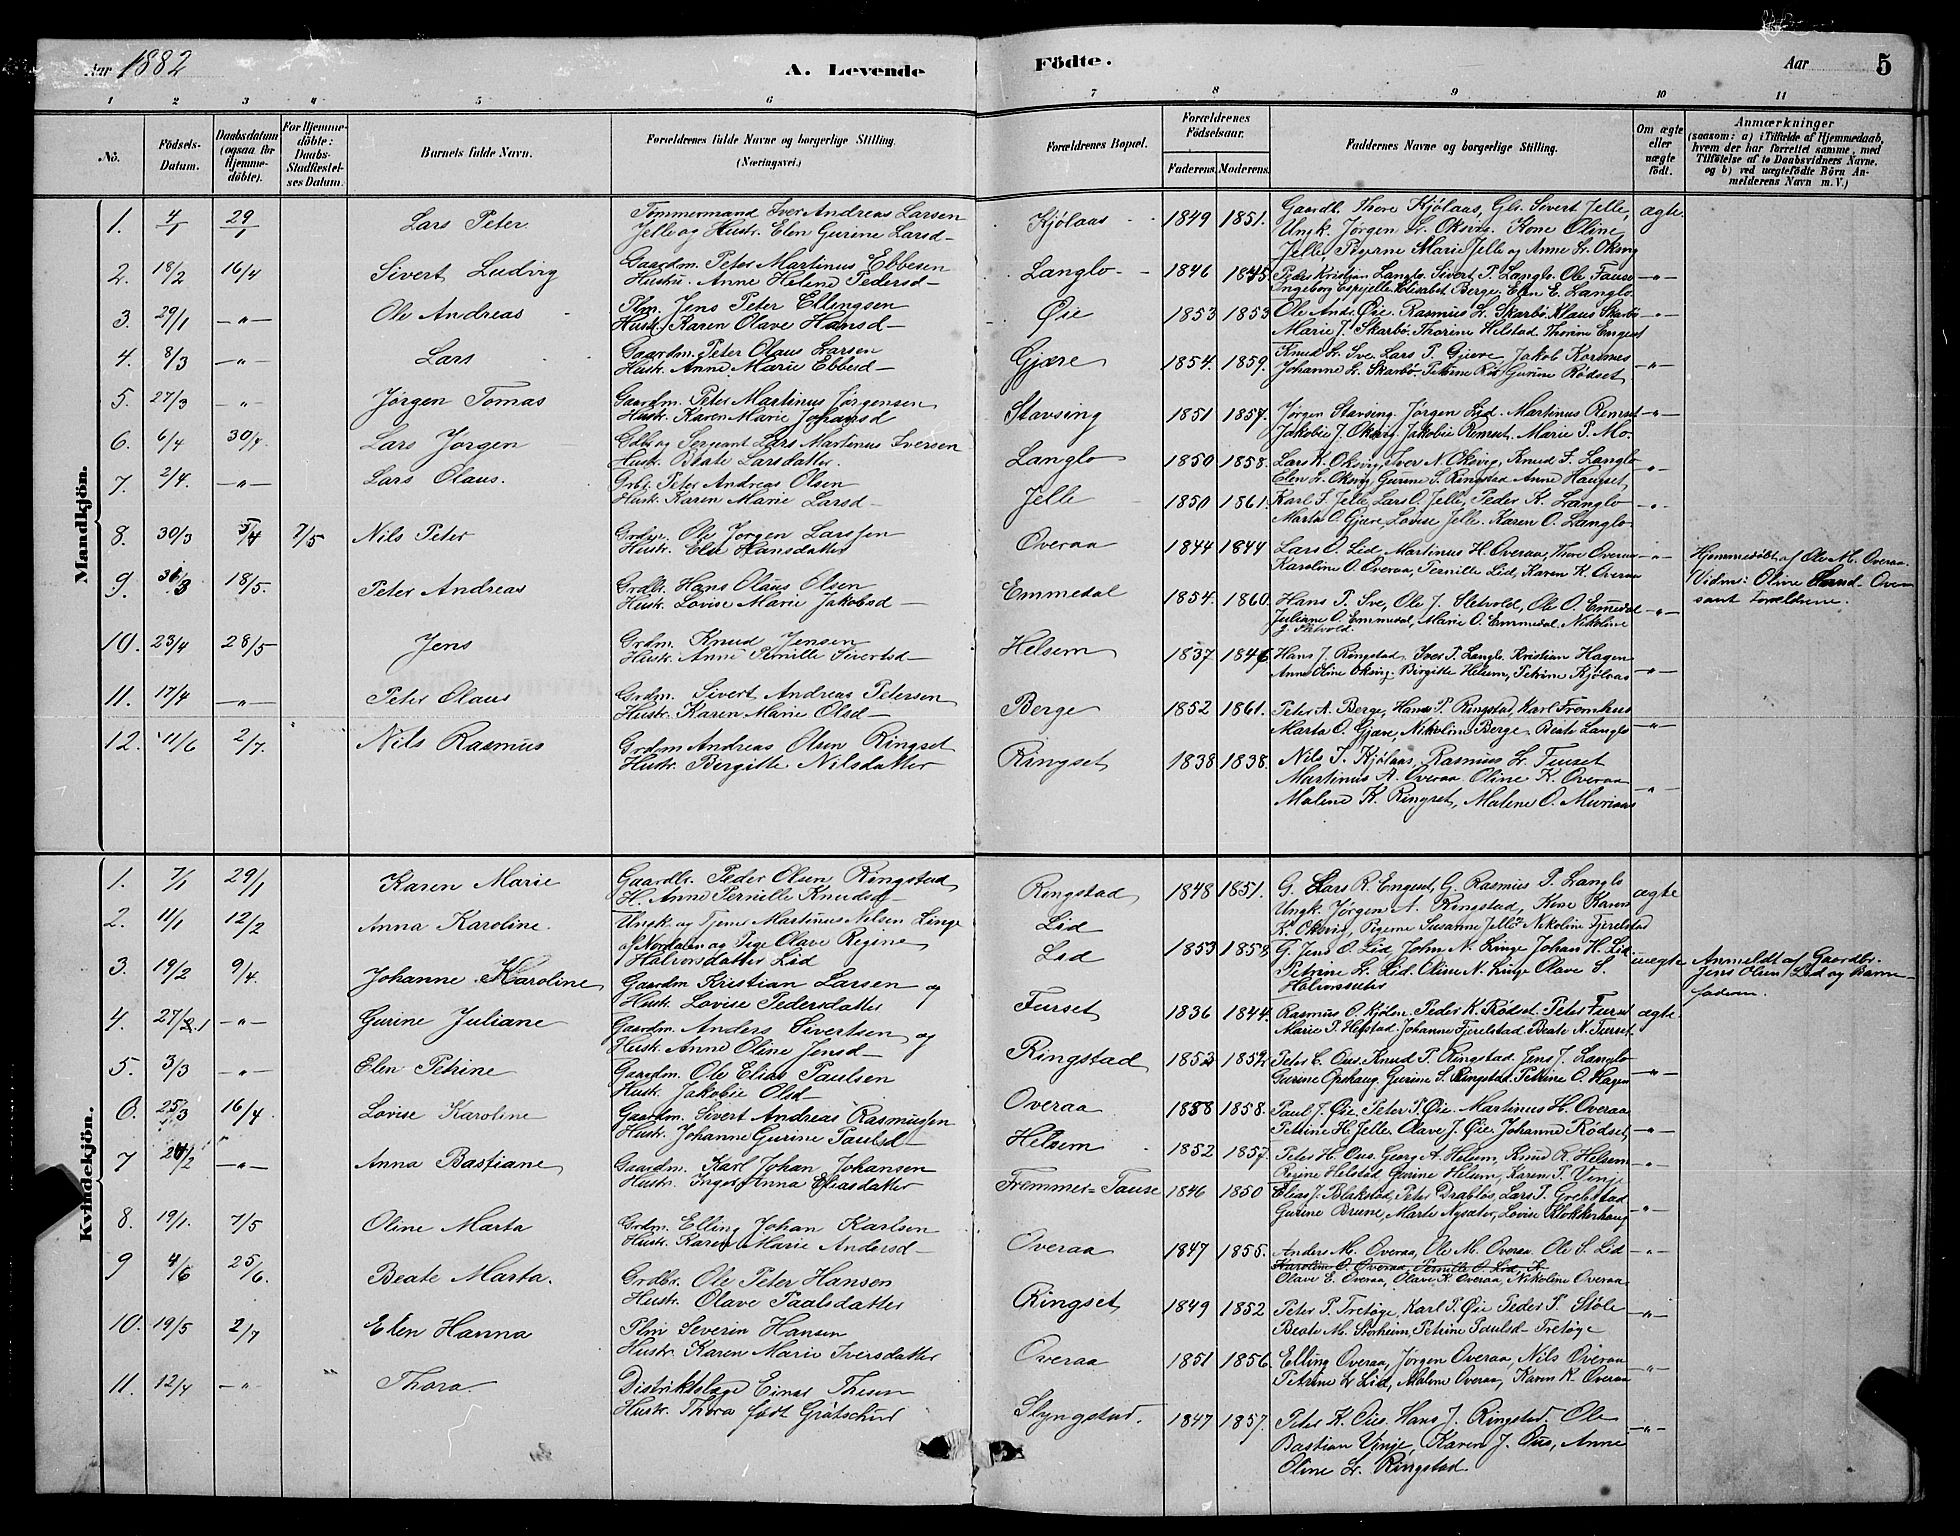 Aar 1882
A. Levende
Födte.
Aar
5
1 2 3 4 5 6 7 8 9 10 11
No.
Födsels-Datum.
Daabsdatum (ogsaa for Hjemme-döbte).
For Hjemme-döbte: Daabs-Stadfæstel-ses Datum.
Barnets fulde Navn.
Forældrenes fulde Navne og borgerlige Stilling. (Næringsvei.)
Forældrenes Bopæl.
Forældrenes Födselsaar.
Faderens. Moderens.
Faddernes Navne og borgerlige Stilling.
Om ægte eller uægte födt.
Anmærkninger
(saasom: a) i Tilfælde af Hjemmedaab,
hvem der har forrettet samme, med
Tilföielse af to Daabsvidners Navne.
og b) ved uægtefödte Börn An-
melderens Navn m. V.)
Mandkjön.
1. 4/1 29/1 Lars Peter Tømmermand Iver Andreas Larsen
Jelle og Hustr. Elen Gurine Larsd-
Kjølaas 1849 1851. Gaardb. Thore Kjølaas, Gbr. Sivert Jelle, ægte
Ungk. Jørgen L. Oksvig. Kone Oline
Jelle, Pigerne Marie Jelle og Anne L. Oksvig
2. 18/2 16/4 Sivert Ludvig Gaardm. Peter Martinus Ebbesen
Hustru. Anne Helene Pedersd-
Langlo 1846 1845 Peder Kristian Langlo. Sivert P. Langlo. Ole Fause -"-
Ingeborg Espejelle. Elisabet Berge, Elen E. Langlo.
3. 29/1 -"- Ole Andreas Plm. Jens Peter Ellingsen
Hustr. Karen Olave Hansd-
Øie 1853 1853 Ole Andr. Øie. Rasmus L. Skarbø Klaus Skarbø -"-
Marie J. Skarbø. Thorine Helstad. Thorine Engeset
4. 8/3 -"- Lars Gaardm. Peter Olaus Larsen
Hustr. Anne Marie Ebbesd-
Gjære 1854. 1859. Knud L. Sve. Lars P. Gjære, Jakob Korsnes -"-
Johanne L. Skarbø. Petrine Gurine Rødset
5. 27/3 -"- Jørgen Tomas Gaardm. Peter Martinus Jørgensen
Hustr. Karen Marie Johansd
Stavsing 1851 1857. Jørgen Stavsing. Jørgen Lid. Martinus Remset -"-
Jakobie J. Oksvig. Jakobie Remset. Marie P. Mo.
6. 6/4 30/4. Lars Jørgen Gdb. og Sergeant Lars Martinus Iversen
Hustr. Beate Larsdatter.
Langlo 1850 1858. Lars K. Oksvig, Iver N. Oksvig, Knud J. Langlo -"-
Elen L. Oksvig, Gurine S. Ringstad Anne Haugset
7. 2/4. -"- Lars Olaus. Grbr. Peter Andreas Olsen
Hustr. Karen Marie Larsd-
Jelle 1850 1861. Karl J. Jelle, Lars O. Jelle, Peder K. Langlo -"-
Marta O. Gjære Lovise Jelle. Karen O. Langlo
8. 30/3 5/4 7/5 Nils Peter Grdbr. Ole Jørgen Larssen
Hustr. Else Hansdatter
Overaa 1844 1844 Lars O. Lid, Martinus H. Overaa, Thore Overaa -"-
Karoline O. Overaa, Pernille Lid, Karen K. Overaa
Hjemmedøbt af Ole M. Overaa.
Vidner: Oline
samt Forældrene.
9. 31/3 18/5. Peter Andreas Grdbr. Hans Olaus Olsen
Hustr. Lovise Marie Jakobsd-
Emmedal 1854. 1860. Hans P. Sve, Ole J. Sletvold, Ole O. Emedal -"-
Juliane O. Emmedal, Marie O. Emmedal. Nikoline
J. Sletvold.
10. 23/4 28/5 Jens Grdm. Knud Jensen
Hustr. Anne Pernille Sivertsd-
Helsem 1837 1846 Hans J. Ringstad. Iver P. Langlo. Kristian Hagen
Anne Oline Oksvig. Birgitte Helsem, Petrine Kjølaas -"-
11. 17/4 -"- Peter Olaus Grdm. Sivert Andreas Petersen
Hustr. Karen Marie Olsd-
Berge 1852 1861. Peter A. Berge, Hans P. Ringstad, Karl Fremhus
Marta O. Gjære, Nikoline Berge, Beate Langlo -"-
12. 11/6 2/7. Nils Rasmus Grdm Andreas Olsen Ringset
Hustr. Bergitte Nilsdatter
Ringset 1838 1838. Nils T. Kjølaas, Rasmus L. Furset
Martinus A. Overaa. Oline K. Overaa
Malene K. Ringset, Malene O. Muriaas -"-
Kvindekjön.
1. 7/1 29/1 Karen Marie Gaardbr. Peder Olsen Ringstad
H. Anne Pernille Knudsd-
Ringstad 1848 1851. G. Lars R. Engeset, G. Rasmus P. Langlo ægte
Ungk. Jørgen A. Ringstad, Kone Karen
K. Oksvig, Pigerne Susanne Jelle Nikoline Fjærelstad
2. 11/1 12/2 Anna Karoline. Ungk. og Tjener Martinus Nilsen Linge
af Nordalen og Pige Olave Regine
Halvorsdatter Lid
Lid
Lid 1853 1858 G. Jens O. Lid, John N. Linge Johan H. Lid uægte
Petrine L. Lid. Oline N. Linge Olave S.
Halvorssæter
Anmeldt af Gaardbr.
Jens Olsen Lid og Barne-
faderen.
3. 19/2 9/4. Johanne Karoline Gaardm Kristian Larsen og
Hustr. Lovise Pedersdatter
Furset 1836 1844. Rasmus O. Kjølen. Peder K. Rødset. Peter Furset ægte
Marie P. Helstad. Johanne Fjærelstad. Beate N. Furset
4. 27/1 -"- Gurine Juliane Gaardm. Anders Sivertsen og
Hustr. Anne Oline Jensd-
Ringstad 1852 1852 Peter C. Ous. Knud P. Ringstad. Jens J. Langlo
Gurine Opshaug. Gurine S. Ringstad. Petrine O. Hagen -"-
5. 3/3 -"- Elen Petrine Gaardm. Ole Elias Paulsen
Hust. Jakobie Olsd-
Overaa 1858 1858. Paul J. Øie. Peter P. Øie. Martinus H. Overaa
Petrine H. Jelle. Olave J. Øie. Johanne Rødset -"-
6. 25/3 16/4. Lovise Karoline Gaardm. Sivert Andreas Rasmussen
Hustr. Johanne Gurine Paulsd-
Helsem 1852 1857. Peter H. Ous. Georg A. Helsem, Knud R. Helsem
Regine Helstad. Gurine Helsem, Karen P. Vinje -"-
7 /2 -"- Anna Bastiane Gaardm. Karl Johan Johansen
Hustr. Inger Anna Eliasdatter
Fremmer-Fause 1846 1850 Elias J. Blakstad, Peter Drabløs, Lars P. Grebstad
Gurine Brune, Marte Nysæter, Lovise Klokkerhaug -"-
8. 19/1. 7/5 Oline Marta Grdm. Elling Johan Karlsen
Hustr. Karen Marie Andersd-
Overaa 1847 1855. Anders M. Overaa, Ole M. Overaa. Ole S. Lid -"-
Karoline O. Overaa, Pernille O. Lid, K.
Olave E. Overaa, Olave K. Overaa, Nikoline Overaa
9 4/6 25/6. Beate Marta. Grdbr. Ole Peter Hansen
Hustr. Olave Paalsdatter
Ringset 1849 1852 Peter P. Tretøge, Karl P. Øie Peder P. Støle -"-
Beate M. Storheim, Petrine Paulsd- Tretøge
10. 19/5 2/7 Elen Hanna Plm Severin Hansen
Hustr. Karen Marie Iversdatter
Overaa 1851 1856. Elling Overaa, Jørgen Overaa, Nils Overaa
Petrine L. Lid, Malene Overaa, Karen K. Overaa -"-
11. 12/4 -"- Thora. Distriktslæge Einar Thesen
Hustr. Thora født Grøtschud
Slyngstad. 1847 1857. Peter K. Ous. Hans J. Ringstad. Ole -"-
Bastian Vinje, Karen J. Ous, Anne
Oline L. Ringstad